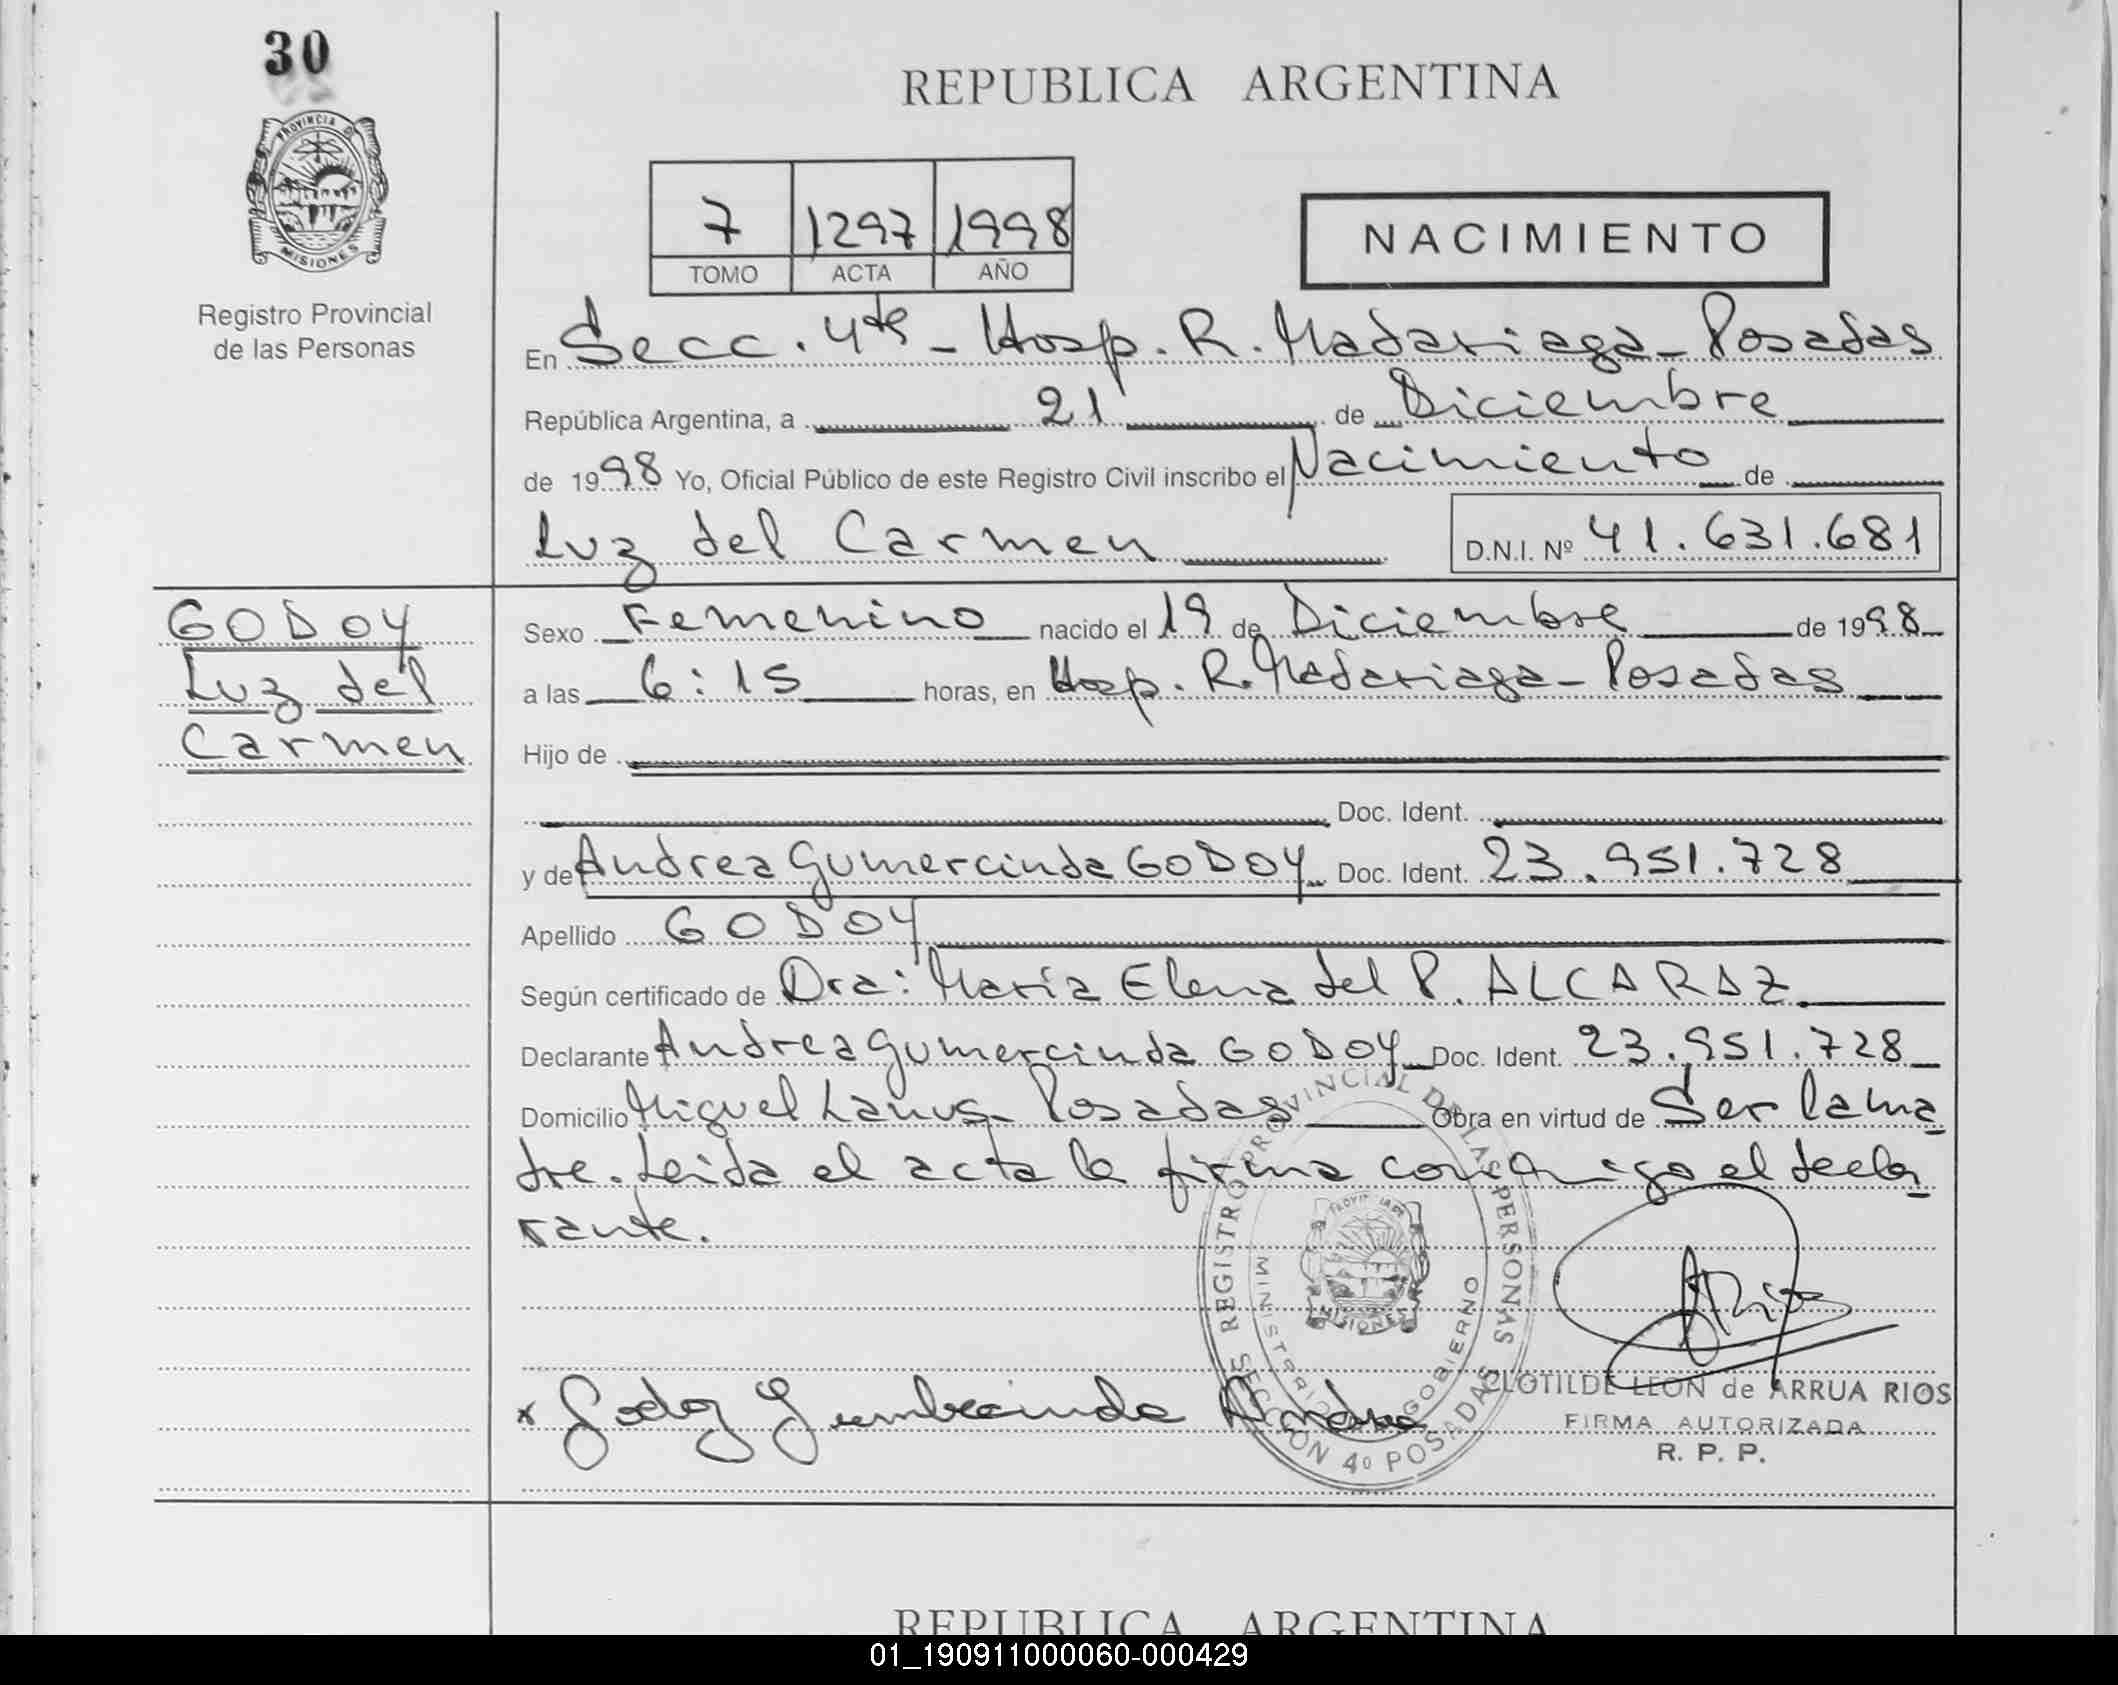 30
PROVINCIA DE
MISIONES
Registro Provincial
de las Personas
REPUBLICA ARGENTINA
7 1297 1998
TOMO ACTA AÑO
NACIMIENTO
En Secc. 4ta - Hosp. R. Madariaga - Posadas
República Argentina, a 21 de Diciembre
de 1998 Yo, Oficial Público de este Registro Civil inscribo el Nacimiento de
Luz del Carmen D.N.I. Nº 41.631.681
GODOY
Luz del
Carmen
Sexo Femenino nacido el 19 de Diciembre de 1998
a las 6:15 horas, en Hosp. R. Madariaga - Posadas
Hijo de
Doc. Ident.
y de Andrea Gumercinda GODOY Doc. Ident. 23.951.728
Apellido GODOY
Según certificado de Dra: María Elena del P. ALCARAZ
Declarante Andrea Gumercinda GODOY Doc. Ident. 23.951.728
Domicilio Miguel Lanus - Posadas Obra en virtud de Ser la ma
dre. Leida el acta la firma conmigo el decla
rante.
REGISTRO PROVINCIAL DE LAS PERSONAS
MINISTERIO GOBIERNO
MISIONES
SECCION 4º POSADAS
ARios
Godoy Gumercinda Andrea
CLOTILDE LEON de ARRUA RIOS
FIRMA AUTORIZADA
R. P. P.
REPUBLICA ARGENTINA
01_190911000060-000429